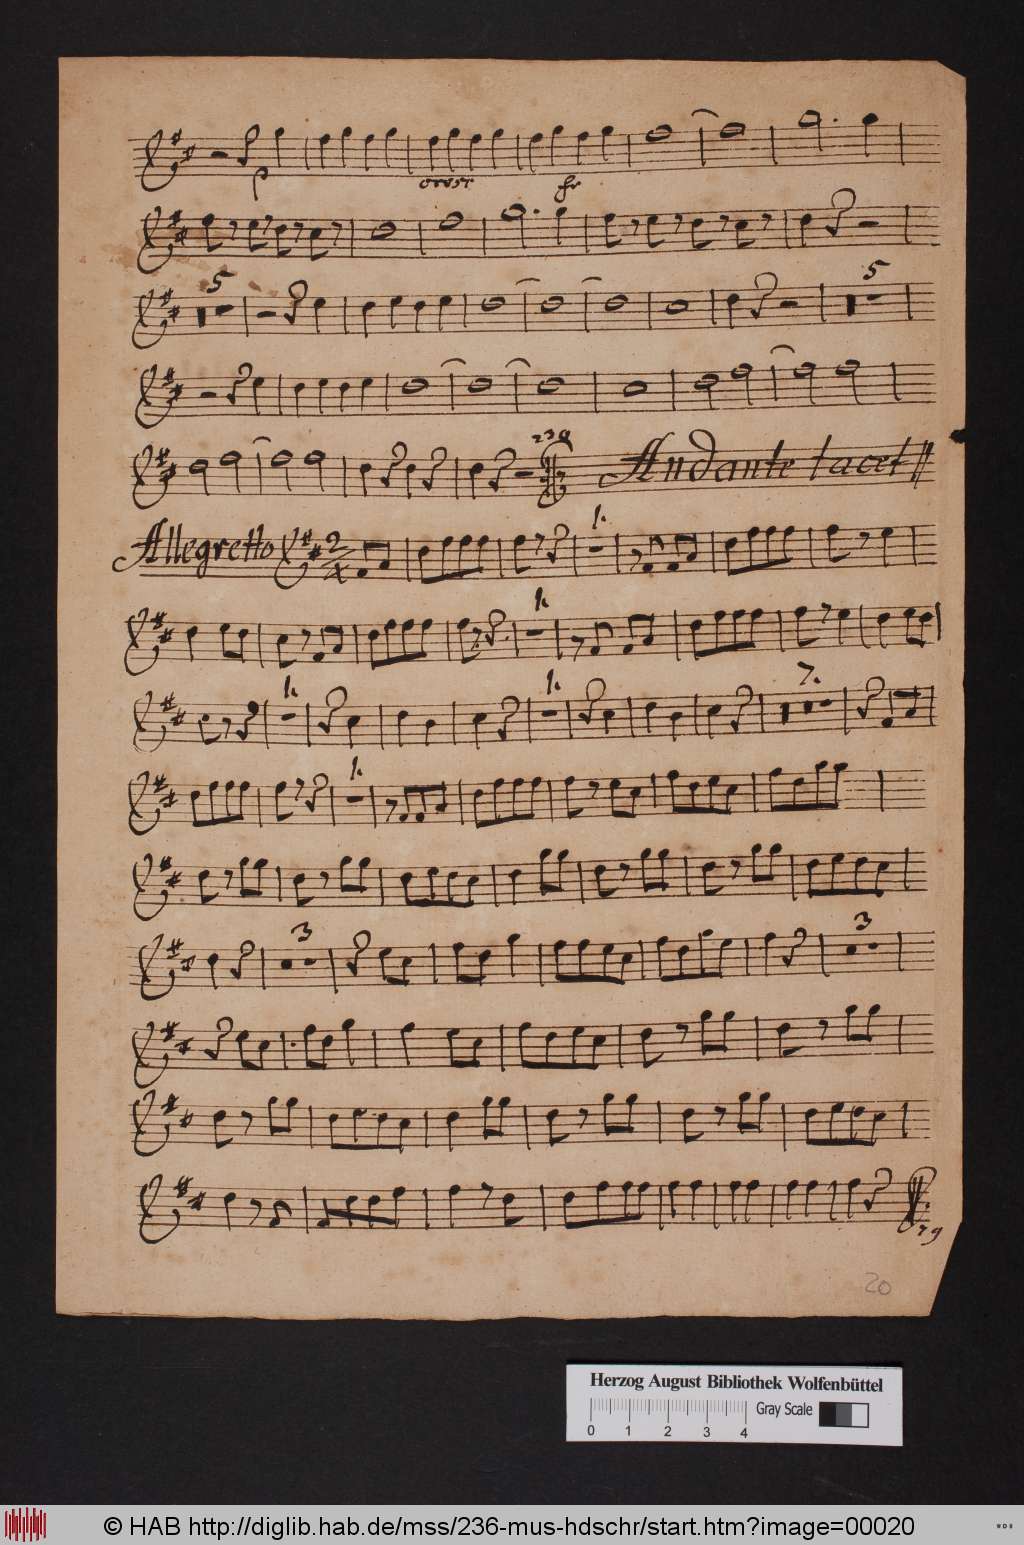 p cresc fr
5 5
238
Andante tacet
Allegretto 2/4 1.
1.
1. 1. 7.
1.
3 3
79
20
Herzog August Bibliothek Wolfenbüttel
0 1 2 3 4 Gray Scale
© HAB http://diglib.hab.de/mss/236-mus-hdschr/start.htm?image=00020